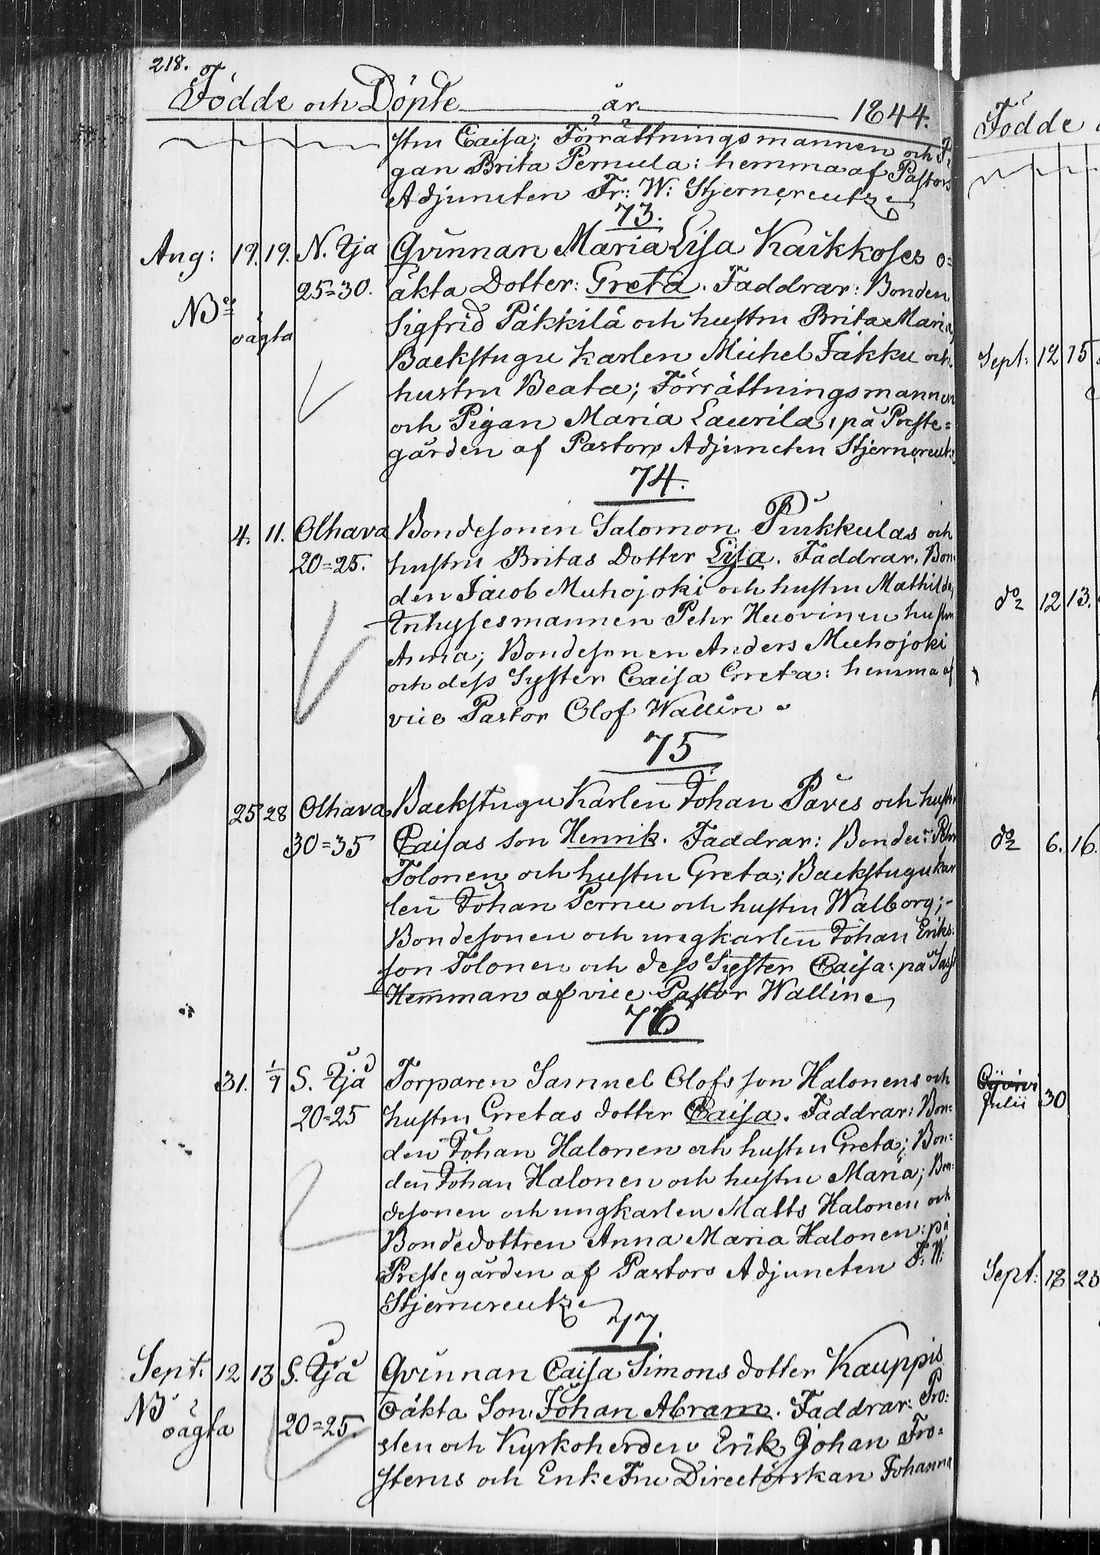 218.
Födde och Döpte år 1844.
stru Caisa; Förrättningsmannen och P.
gan Brita Pernula: hemma af Pastors
Adjuncten Fr: W: Stjerncreutz
73.
Aug: 19. 19. N. Ijå Qvinnan Maria Lisa Kaikkoses o=
25=30. äkta Dotter: Greta. Faddrar: Bonden
NB Sigfrid Päkkilä och hustru Brita Maria,
oägta
Backstugu karlen Michel Fäkku och
hustru Beata; Förrättningsmannen
och Pigan Maria Laurila, på Preste=
gården af Pastors Adjuncten Stjerncreutz
74.
4. 11. Olhava Bondesonen Salomon Purkkulas och
20=25. hustru Britas Dotter Lisa. Faddrar. Bon
den Jacob Muhojoki och hustru Mathilda,
Inhysesmannen Pehr Huovinen hustru
Anna; Bondesonen Anders Muhojoki
och dess Syster Caisa Greta: hemma af
vice Pastor Olof Wallin
75
25 28 Olhava Backstugu Karlen Johan Paves och hustr
30=35 Caisas son Henrik. Faddrar: Bonden Pehr
Tolonen och hustru Greta; Backstugukar
len Johan Pernu och hustru Walborg;-
Bondesonen och ungkarlen Johan Eriks
son Tolonen och dess Syster Caisa: på
Hemman af vice Pastor Wallin
76
31. 1/9 S. Ijå Torparen Samuel Olofs son Halonens och
20=25 hustru Gretas dotter Caisa. Faddrar: Bon=
den Johan Halonen och hustru Greta; Bon=
den Johan Halonen och hustru Maria; Bon=
desonen och ungkarlen Matts Halonen och
Bondedottren Anna Maria Halonen: på
Prestegården af Pastors Adjuncten F. W.
Stjerncreutz
77.
Sept. 12 13 S. Ijå Qvinnan Caisa Simons dotter Kauppis
NB oäkta Son Johan Abram. Faddrar: Pro=
oägta 20=25. sten och Kyrkoherden Erik Johan Fro=
sterus och Enke Fru Directörskan Johanna
Födde
Sept: 12 15
do 12 13.
do 6. 16.
Julii 30
Sept: 18 23